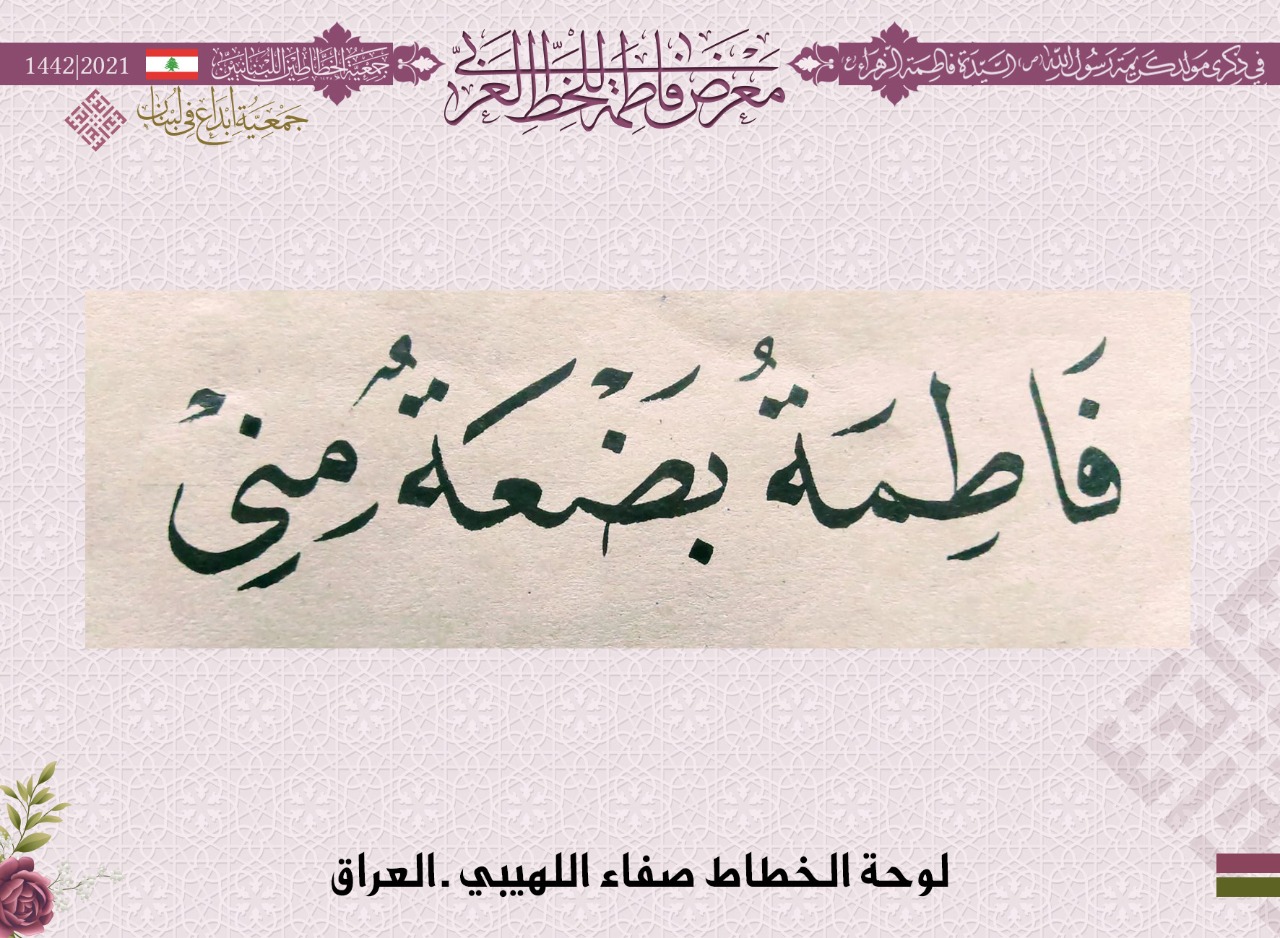 في ذكرى مولد كريمة رسول الله (ص) السيدة فاطمة الزهراء (ع)
معرض فاطمة للخط العربي
جمعية الخطاطين اللبنانيين
1442|2021
جمعية إبداع في لبنان
فَاطِمَةُ بَضْعَةٌ مِنِّيْ
لوحة الخطاط صفاء اللهيبي .العراق